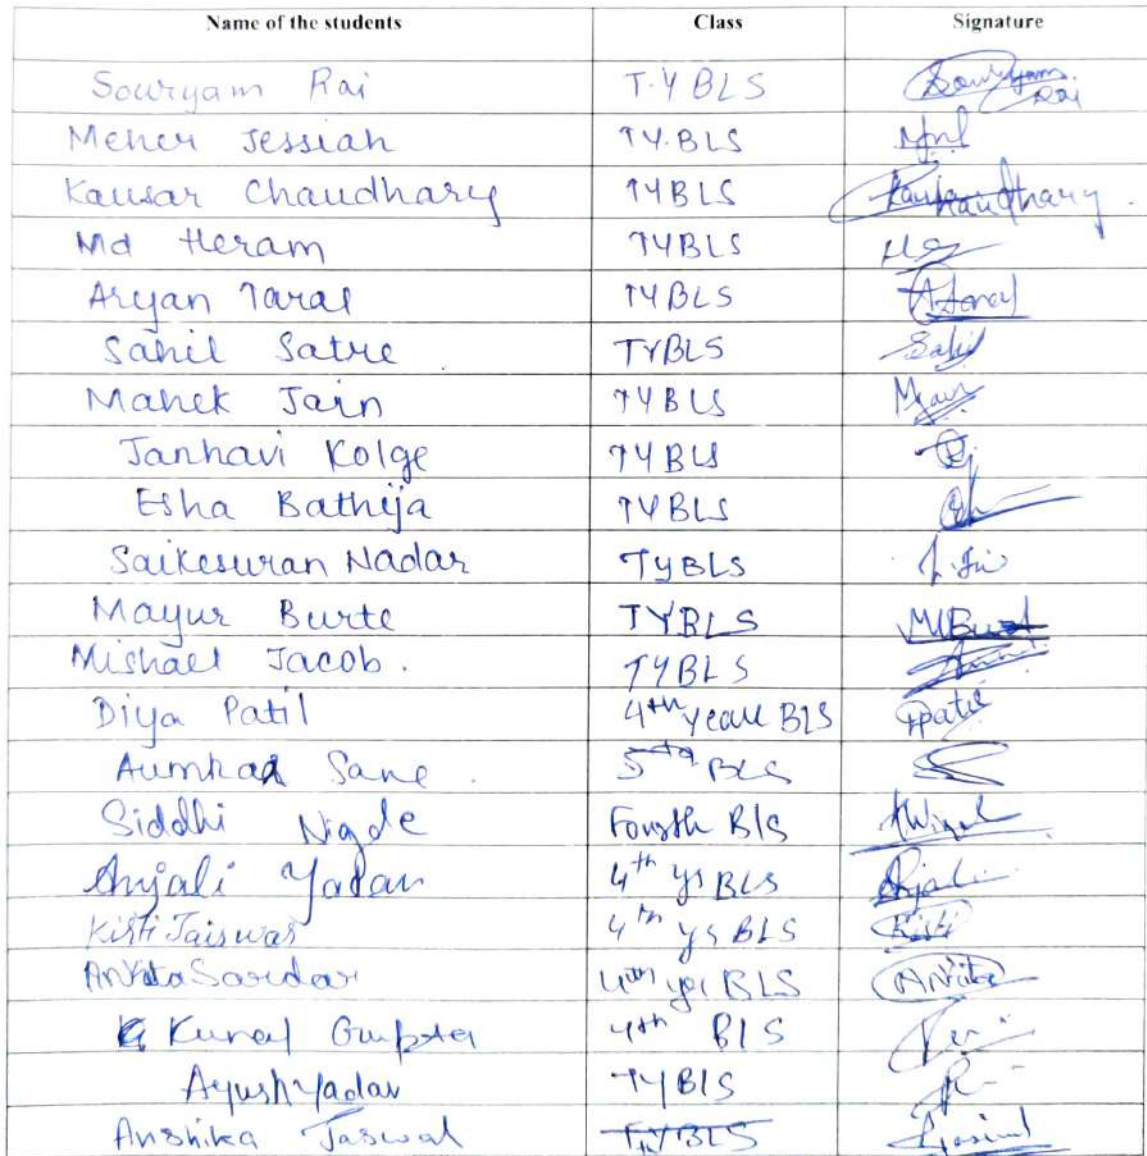 Name of the students Class Signature
Souryam Rai T.Y BLS Souryam Rai
Meher Jessiah TY.BLS
Kausar Chaudhary TYBLS Kausar Chaudhary
Md Heram TYBLS
Aryan Taral TYBLS A.Taral
Sahil Satre TYBLS Sahil
Mahek Jain TYBLS MJain
Janhavi Kolge TYBLS
Esha Bathija TYBLS
Saikesuran Nadar TYBLS
Mayur Burte TYBLS
Mishael Jacob. TYBLS
Diya Patil 4th year BLS DPatil
Aumkar Sane BLS
Siddhi Nigde Fourth BLS
Anjali Yadav 4th yr BLS Anjali
Kirti Jaiswar 4th yr BLS Kirti
Ankita Sardar 4th yr BLS Ankita
Kunal Gupta 4th BLS
Ayush Yadav TYBLS
Anshika Jaswal TYBLS